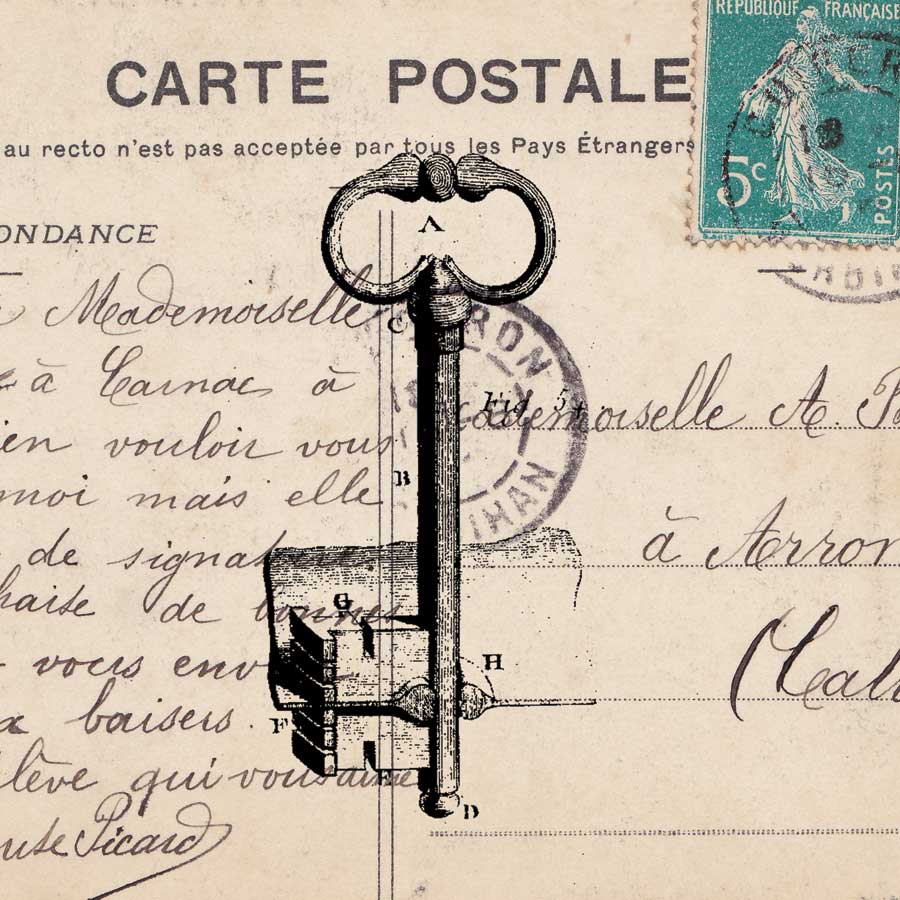 RÉPUBLIQUE FRANÇAISE
CARTE POSTALE
5c
POSTES
au recto n'est pas acceptée par tous les Pays Étrangers
ONDANCE
Mademoiselle
à Carnac à
ien vouloir vous
moi mais elle
de
de bonnes
vous
baisers.
lève qui vous aime
Picard
RON
IHAN
ademoiselle A.
à Arron
(Cal
A
C
Fig. 5
B
G
H
F
E
D